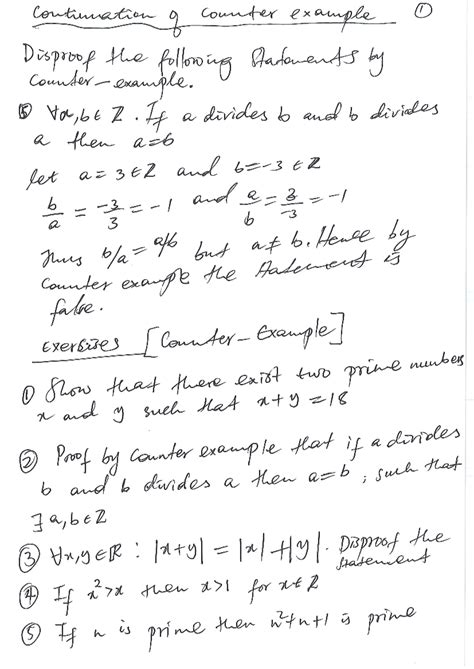 Continuation of counter example ①
Disproof the following statements by
counter-example.
⑤ ∀a,b∈ℤ. If a divides b and b divides
a then a=b
let a=3∈ℤ and b=-3∈ℤ
b/a = -3/3 = -1 and a/b = 3/-3 = -1
Thus b/a = a/b but a≠b. Hence by
counter example the statement is
false.
Exercises [Counter-Example]
① Show that there exist two prime numbers
x and y such that x+y=18
② Proof by counter example that if a divides
b and b divides a then a=b, such that
∃a,b∈ℤ
③ ∀x,y∈ℝ : |x+y| = |x|+|y|. Disproof the
statement
④ If x²>x then x>1 for x∈ℝ
⑤ If n is prime then n²+n+1 is prime